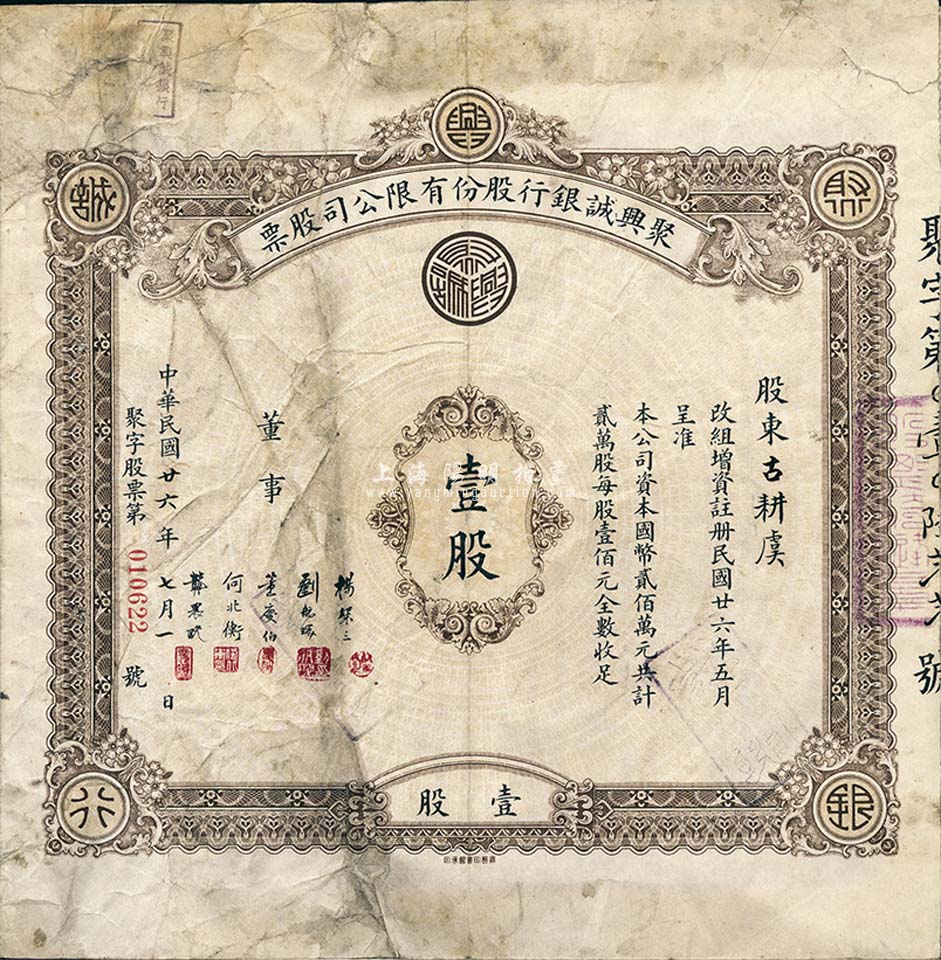 聚興誠銀行股份有限公司股票
聚
興
誠
銀
行
股東古耕虞
改組增資註册民國廿六年五月
呈准
本公司資本國幣貳佰萬元共計
貳萬股每股壹佰元全數收足
壹股
董事
楊粲三
董慶伯
何兆衡
中華民國廿六年七月一日
聚字股票第010622號
壹股
聚字第
號
上海陽明拍賣
www.yangmingauction.com